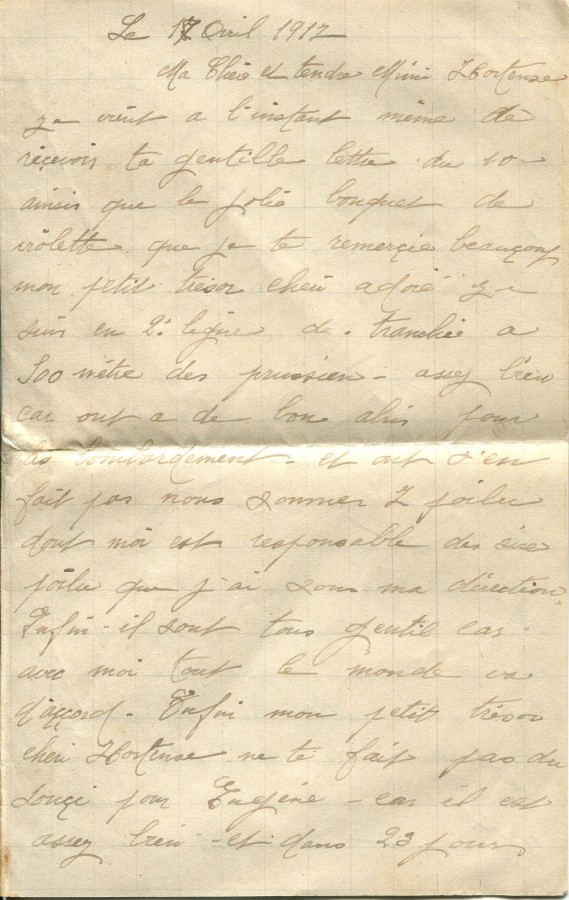 Le 17 Avril 1917
Ma Chère et tendre Mimi Hortense
Je vient a l'instant même de
reçevoir ta gentille lettre du 10
ainsis que le jolie bouquet de
violette que je te remerçie beauçoup
mon petit trésor cheri adoré Je
suis en 2e ligne de tranchée a
500 mêtre des prussien - assez bien
car ont a de bon abris pour
le bombardement - et ont s'en
fait pas nous sommes 7 poilu
dont moi est responsable des sixe
poilu que j'ai sous ma direction,
Enfin - il sont tous gentil car
avec moi tout le monde va
d'accord - Enfin mon petit trésor
cheri Hortense ne te fait pas du
souçi pour Eugéne - car il est
assez bien - et dans 23 jours